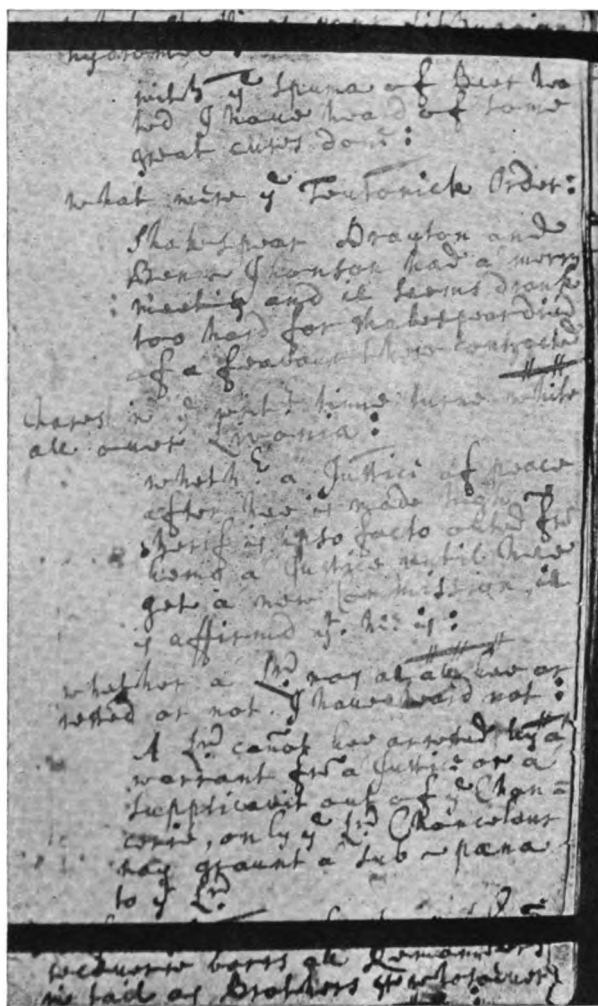 with yᵉ spuma of Beer hea
ted I haue heard of some
great cures done:
what were yᵉ Teutonick Order:
Shakespear Drayton and
Benn Jhonson had a merry
meeting and it seems drank
too hard for Shakespear died
of a feavour there contracted
Hares in yᵉ wintʳ time turne white
all ouer Livonia:
whethʳ a Justice of peace
after hee is made high
sherif is ipso facto outed frō
being a Justice until hee
get a new Commission, it
is affirmd yᵗ. hee is:
whether a Lʳᵈ may at all bee ar
rested or not. I haue heard not:
A Lʳᵈ cañot bee arrested by a
warrant frō a Justice or a
supplicavit out of yᵉ Chan=
cerie, only yᵉ Lʳᵈ Chancelour
may graunt a sub-pæna
to yᵉ Lʳᵈ
recouerie barrs all Remainders
in tail as Brothers